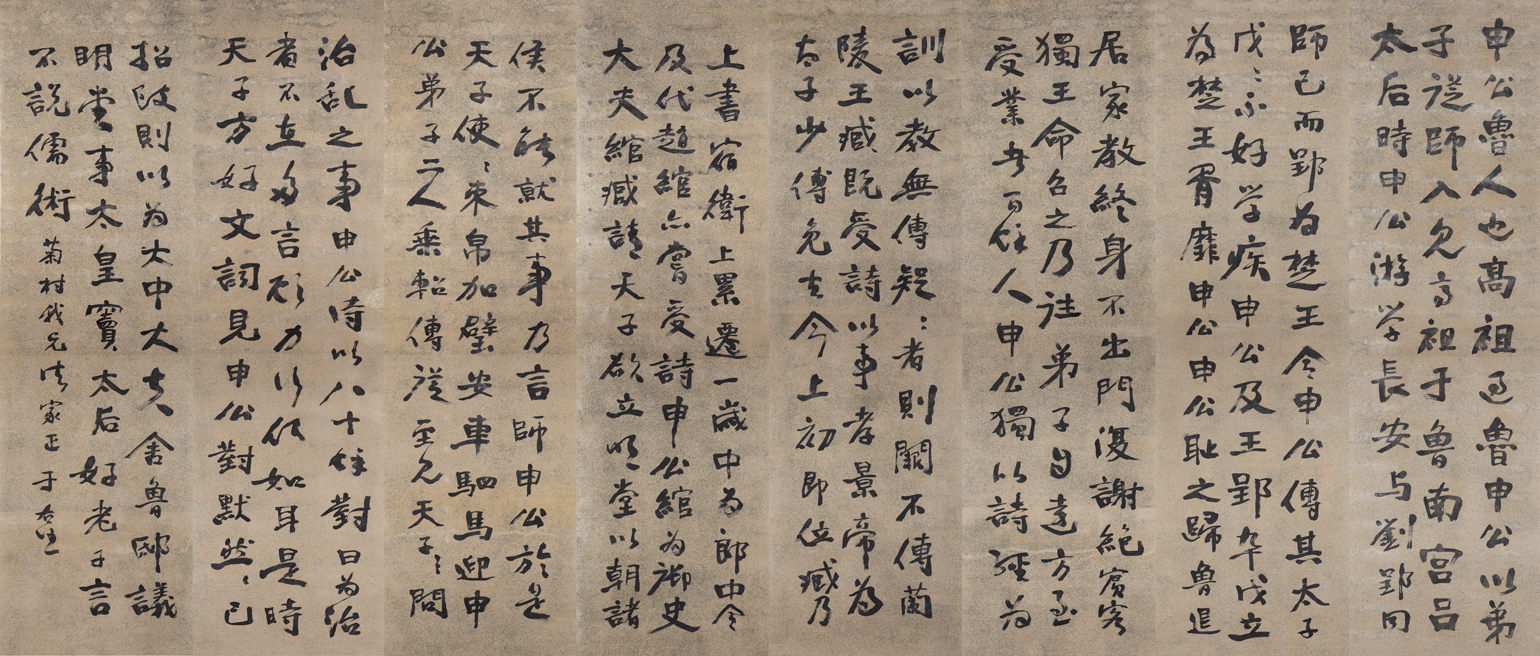 申公魯人也高祖過魯申公以弟
子從師入見高祖于魯南宮呂
太后時申公游学長安与劉郢同
師已而郢为楚王令申公傅其太子
戊戊不好学疾申公及王郢卒戊立
为楚王胥靡申公申公耻之歸魯退
居家教終身不出門復謝絕賓客
獨王命召之乃往弟子自遠方至
受業者百餘人申公獨以詩經为
訓以教無傳疑疑者則闕不傳蘭
陵王臧既受詩以事孝景帝为
太子少傅免去今上初即位臧乃
上書宿衛上累遷一歲中为郎中令
及代趙綰亦嘗受詩申公綰为御史
大夫綰臧請天子欲立明堂以朝諸
侯不能就其事乃言師申公於是
天子使使束帛加璧安車駟馬迎申
公弟子二人乘軺傳從至見天子天子問
治乱之事申公時以八十餘對曰为治
者不在多言顧力行何如耳是時
天子方好文詞見申公對默然然已
招致則以为太中大夫舍魯邸議
明堂事太皇竇太后好老子言
不説儒術 菊村我兄法家正 于右任